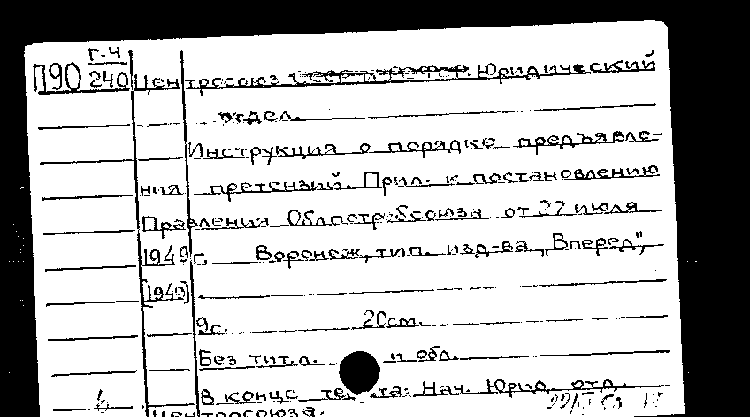 Г-4
П90 240 Центросоюз Юридический
отдел.
Инструкция о порядке предъявле-
ния претензий. Прил. к постановлению
Правления Облпотребсоюза от 27 июля
1949 г. Воронеж, тип. изд-ва „Вперед",
[1949]
9с. 20см.
Без тит. л. и обл.
В конце текста: Нач. Юрид. отд.
Центросоюза.